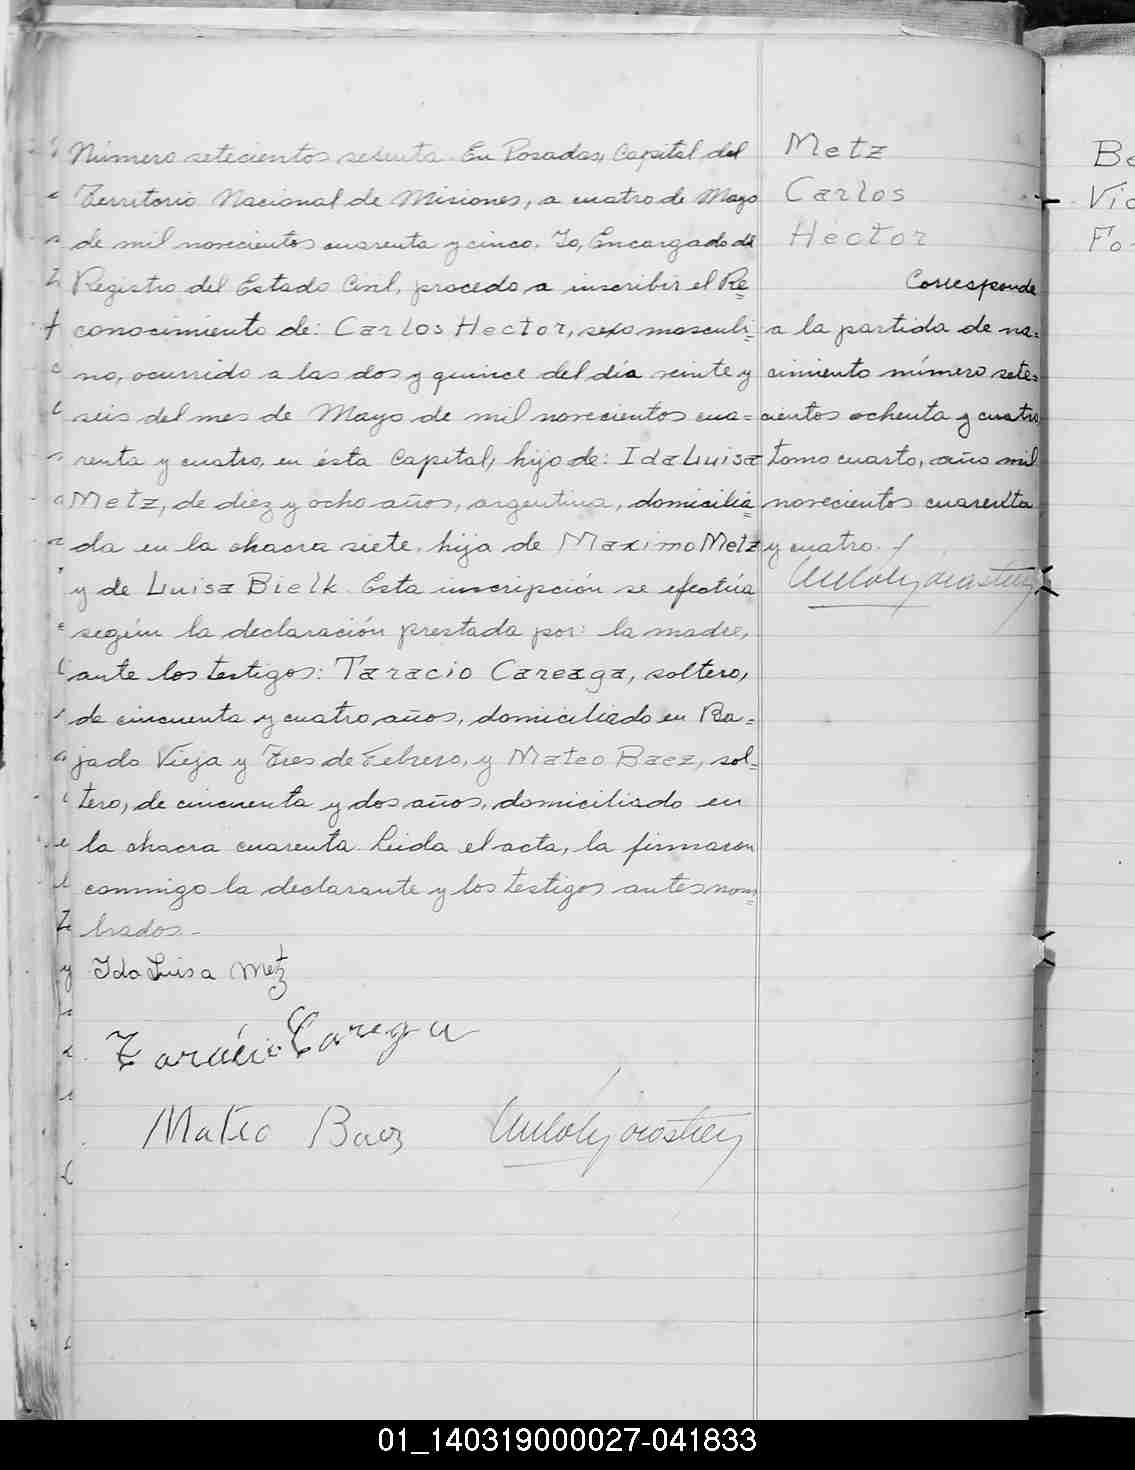 Número setecientos sesenta. En Posadas, Capital del
Territorio Nacional de Misiones, a cuatro de Mayo
de mil novecientos cuarenta y cinco. Yo, Encargado del
Registro del Estado Civil, procedo a inscribir el Re=
conocimiento de: Carlos Hector, sexo masculi=
no, ocurrido a las dos y quince del día veinte y
seis del mes de Mayo de mil novecientos cua=
renta y cuatro, en ésta Capital, hijo de: Ida Luisa
Metz, de diez y ocho años, argentina, domicilia=
da en la chacra siete, hija de Maximo Metz
y de Luisa Bielk. Esta inscripción se efectúa
según la declaración prestada por: la madre,
ante los testigos: Taracio Careaga, soltero,
de cincuenta y cuatro años, domiciliado en Ba=
jada Vieja y Tres de Febrero, y Mateo Baez, sol=
tero, de cincuenta y dos años, domiciliado en
la chacra cuarenta. Leida el acta, la firmaron
conmigo la declarante y los testigos antes nom=
brados.-
Ida Luisa Metz
Taracio Carega
Mateo Baez
Metz
Carlos
Hector
Corresponde
a la partida de na=
cimiento número sete=
cientos ochenta y cuatro
tomo cuarto, año mil
novecientos cuarenta
y cuatro.
Be
Vic
Fo
01_140319000027-041833